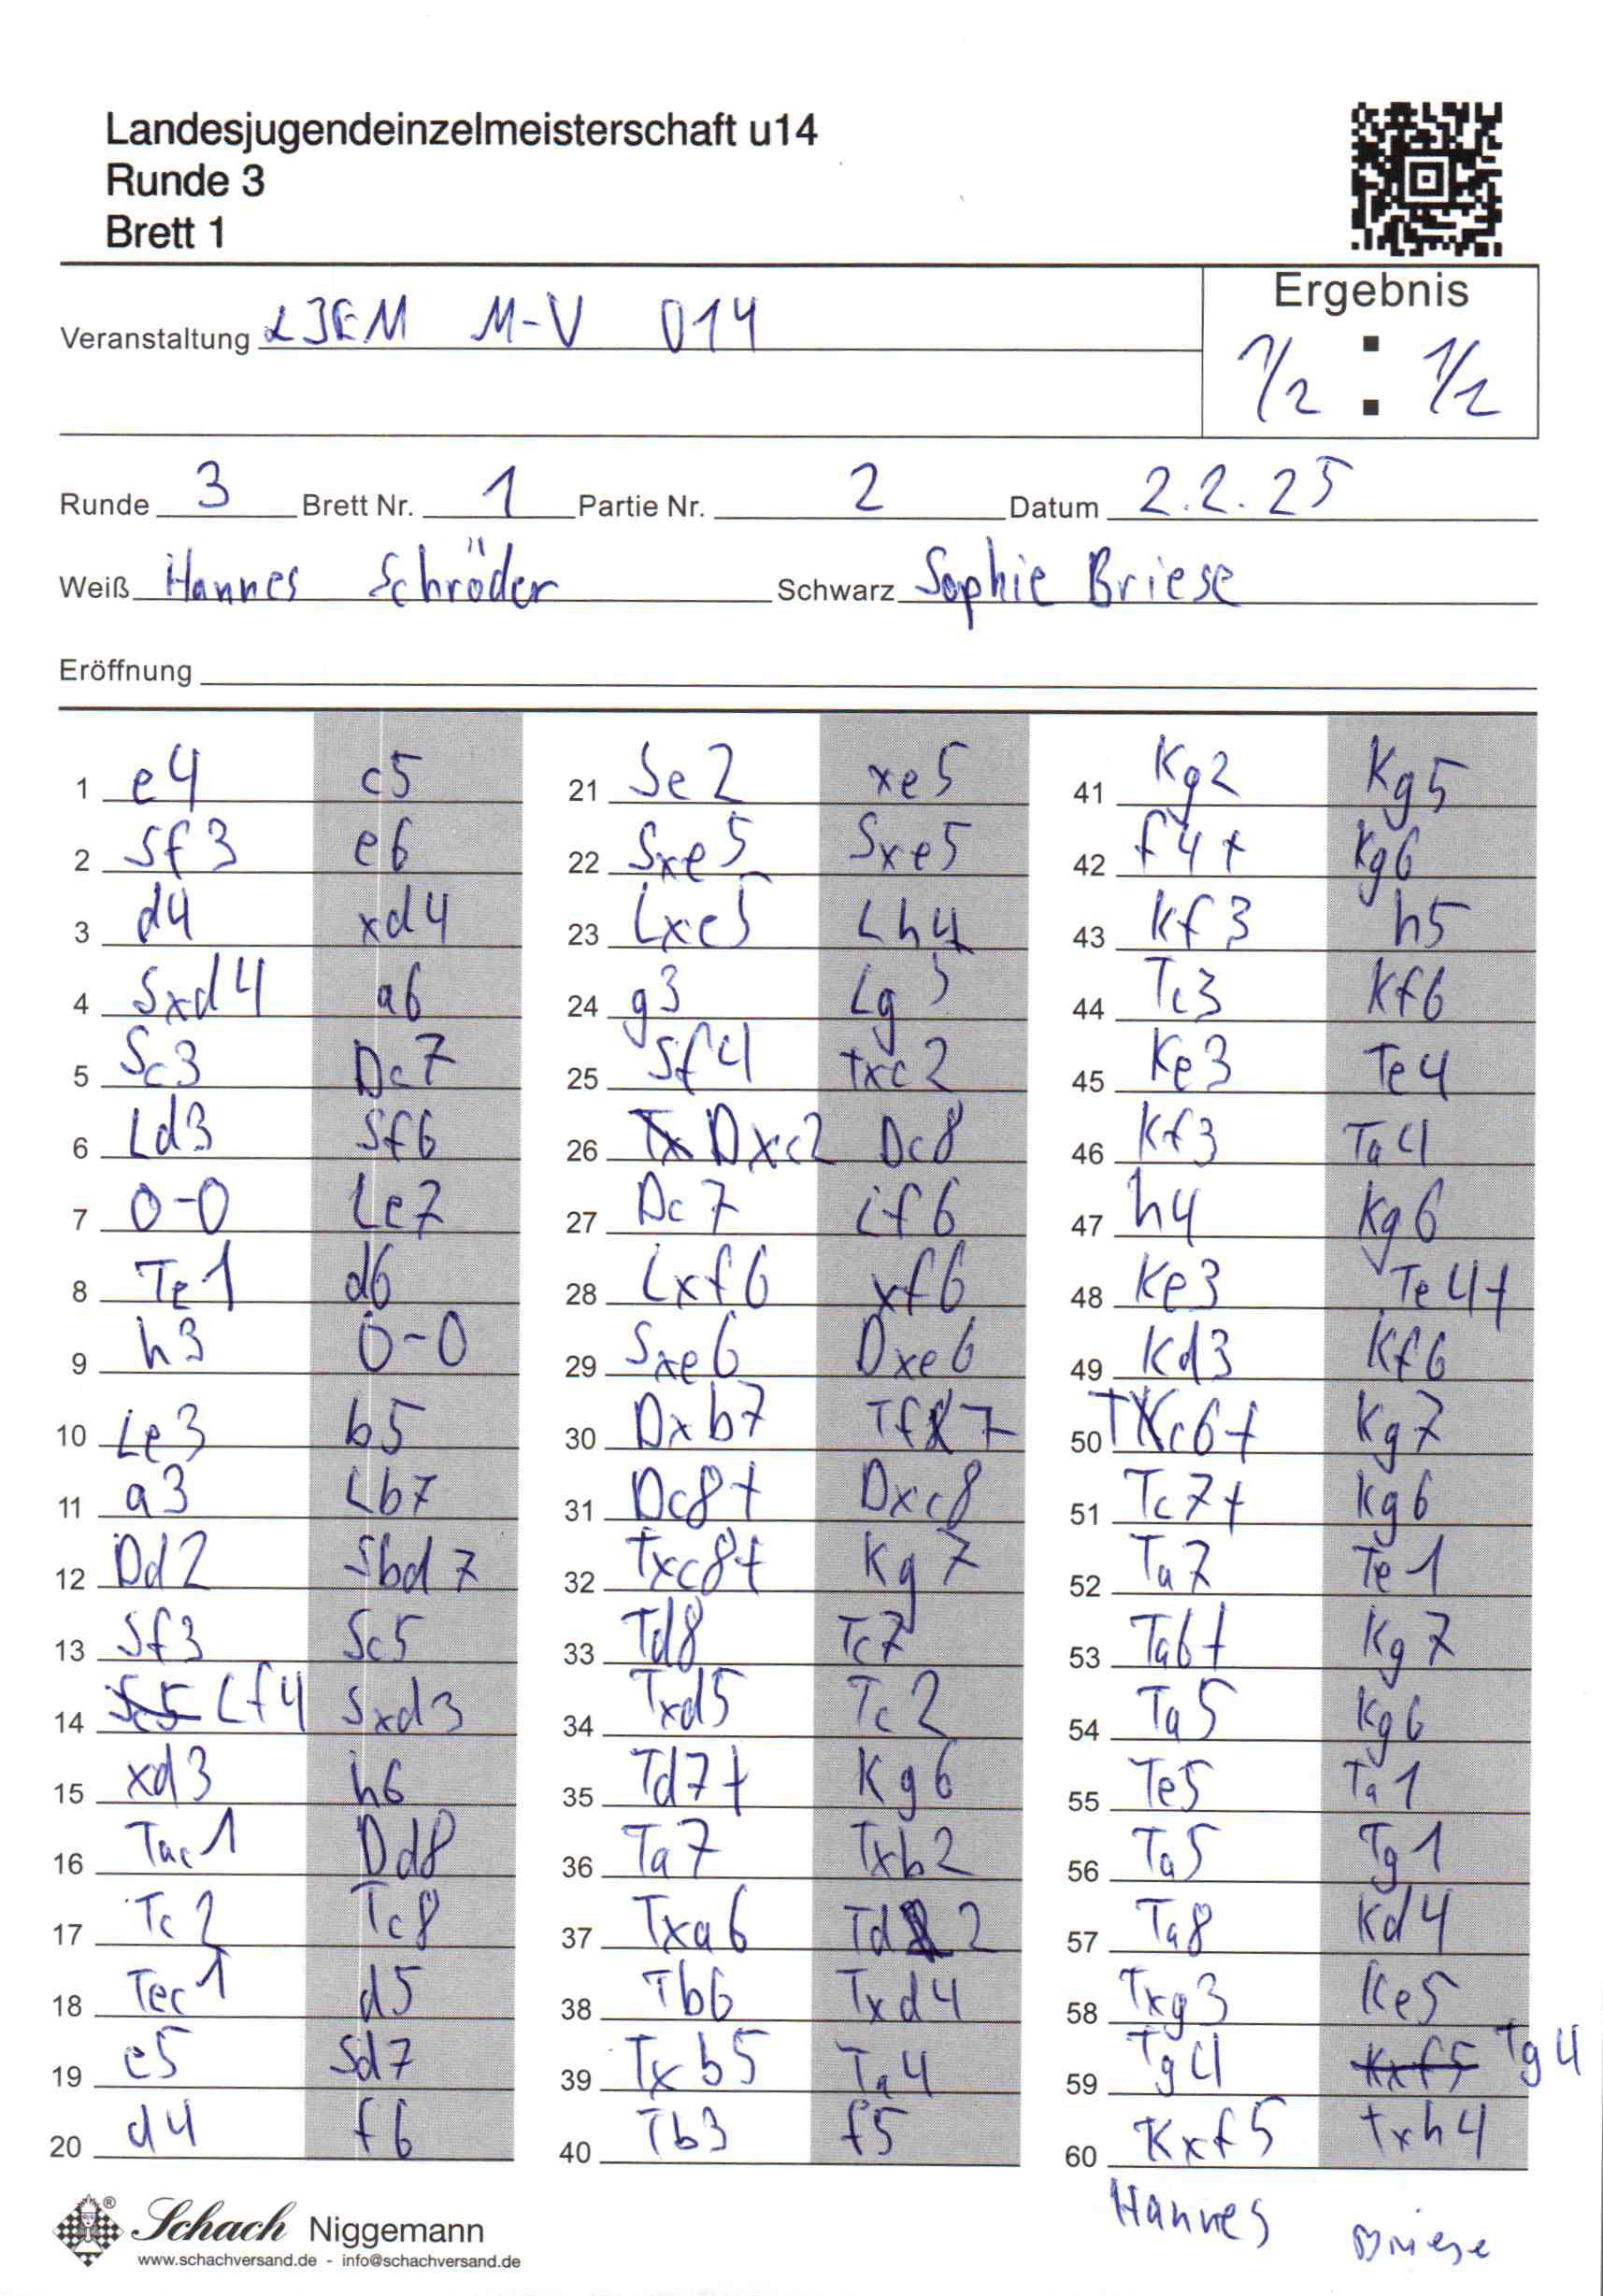 Landesjugendeinzelmeisterschaft u14
Runde 3
Brett 1
Ergebnis
Veranstaltung LJEM M-V U14
1/2 : 1/2
Runde 3 Brett Nr. 1 Partie Nr. 2 Datum 2.2.25
Weiß Hannes Schröder Schwarz Sophie Briese
Eröffnung
1 e4 c5
2 Sf3 e6
3 d4 xd4
4 Sxd4 a6
5 Sc3 Dc7
6 Ld3 Sf6
7 0-0 Le7
8 Te1 d6
9 h3 0-0
10 Le3 b5
11 a3 Lb7
12 Dd2 Sbd7
13 Sf3 Sc5
14 Lf4 Sxd3
15 xd3 h6
16 Tac1 Dd8
17 Tc2 Tc8
18 Tec1 d5
19 e5 Sd7
20 d4 f6
21 Se2 xe5
22 Sxe5 Sxe5
23 Lxe5 Lh4
24 g3 Lg5
25 Sf4 Txc2
26 Dxc2 Dc8
27 Dc7 Lf6
28 Lxf6 xf6
29 Sxe6 Dxe6
30 Dxb7 Tf7
31 Dc8+ Dxc8
32 Txc8+ Kg7
33 Td8 Tc7
34 Txd5 Tc2
35 Td7+ Kg6
36 Ta7 Txb2
37 Txa6 Td2
38 Tb6 Txd4
39 Txb5 Ta4
40 Tb3 f5
41 Kg2 Kg5
42 f4+ Kg6
43 Kf3 h5
44 Tc3 Kf6
45 Ke3 Te4
46 Kf3 Ta4
47 h4 Kg6
48 Ke3 Te4+
49 Kd3 Kf6
50 Tc6+ Kg7
51 Tc7+ Kg6
52 Ta7 Te1
53 Ta6+ Kg7
54 Ta5 Kg6
55 Te5 Ta1
56 Ta5 Tg1
57 Ta8 Kd4
58 Txg3 Ke5
59 Tg4 Kxf5 Tg4
60 Kxf5 Txh4
Hannes Briese
Schach Niggemann
www.schachversand.de - info@schachversand.de